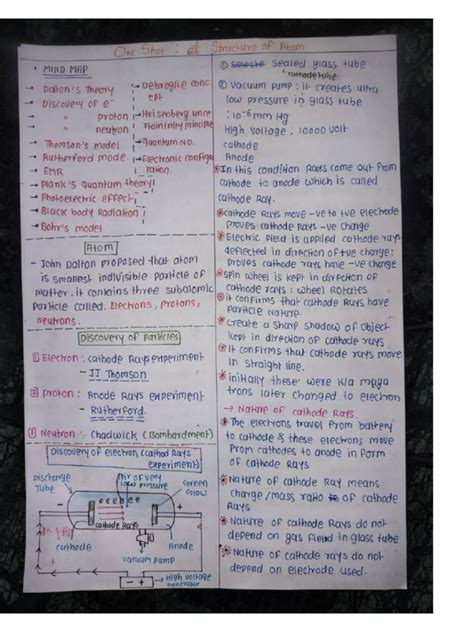 One Shot : Structure of Atom
• MIND MAP
- Dalton's Theory
- Discovery of e⁻
- " proton
- " neutron
- Thomson's model
- Rutherford mode.
- EMR
- Planx's quantum theory
- Photoelectric effect
- Black body Radiation
- Bohr's model
- Debroglie conc
ept
- Heisenberg unce
- Quantum NO.
- Electronic configu
ration.
Atom
- John Dalton proposed that atom
is smallest indivisible particle of
matter. it contains three subatomic
particle called. Electrons, protons,
neutrons.
Discovery of Particles
1 Electron : cathode Rays experiment
- JJ Thomson
2 Proton : Anode Rays experiment
- Rutherford
3 Neutron :- Chadwick (Bombardment)
Discovery of electron (cathod Rays
experiment)
Discharge
Tube
Air of very
low pressure
Green
Glow
e e e e e
cathode Rays
cathode
Anode
vacuum pump
High voltage
① Sealed glass tube
cathode tube
② Vacuum pump : it creates ultra
low pressure in glass tube
: 10⁻⁶ mm Hg
High voltage : 10000 volt
cathode
Anode
* In this condition Rays come out from
cathode to anode which is called
cathode Ray.
* cathode Rays move -ve to +ve electrode
proves cathode Rays -ve charge
* Electric field is applied cathode rays
deflected in direction of +ve charge :
proves cathode rays have -ve charge
* spin wheel is kept in direction of
cathode rays : wheel Rotates
* it confirms that cathode Rays have
particle nature.
* Create a sharp shadow of object
kept in direction of cathode rays
* It confirms that cathode rays move
in straight line.
* Initially these were k/a
trons later changed to electron
→ Nature of cathode Rays.
* The electrons travel from battery
to cathode & these electrons move
From cathodes to anode in form
of cathode Rays
* Nature of cathode Ray means
charge/mass ratio of cathode
Rays
* Nature of cathode Rays do not
depend on gas in glass tube
* Nature of cathode rays do not
depend on electrode used.